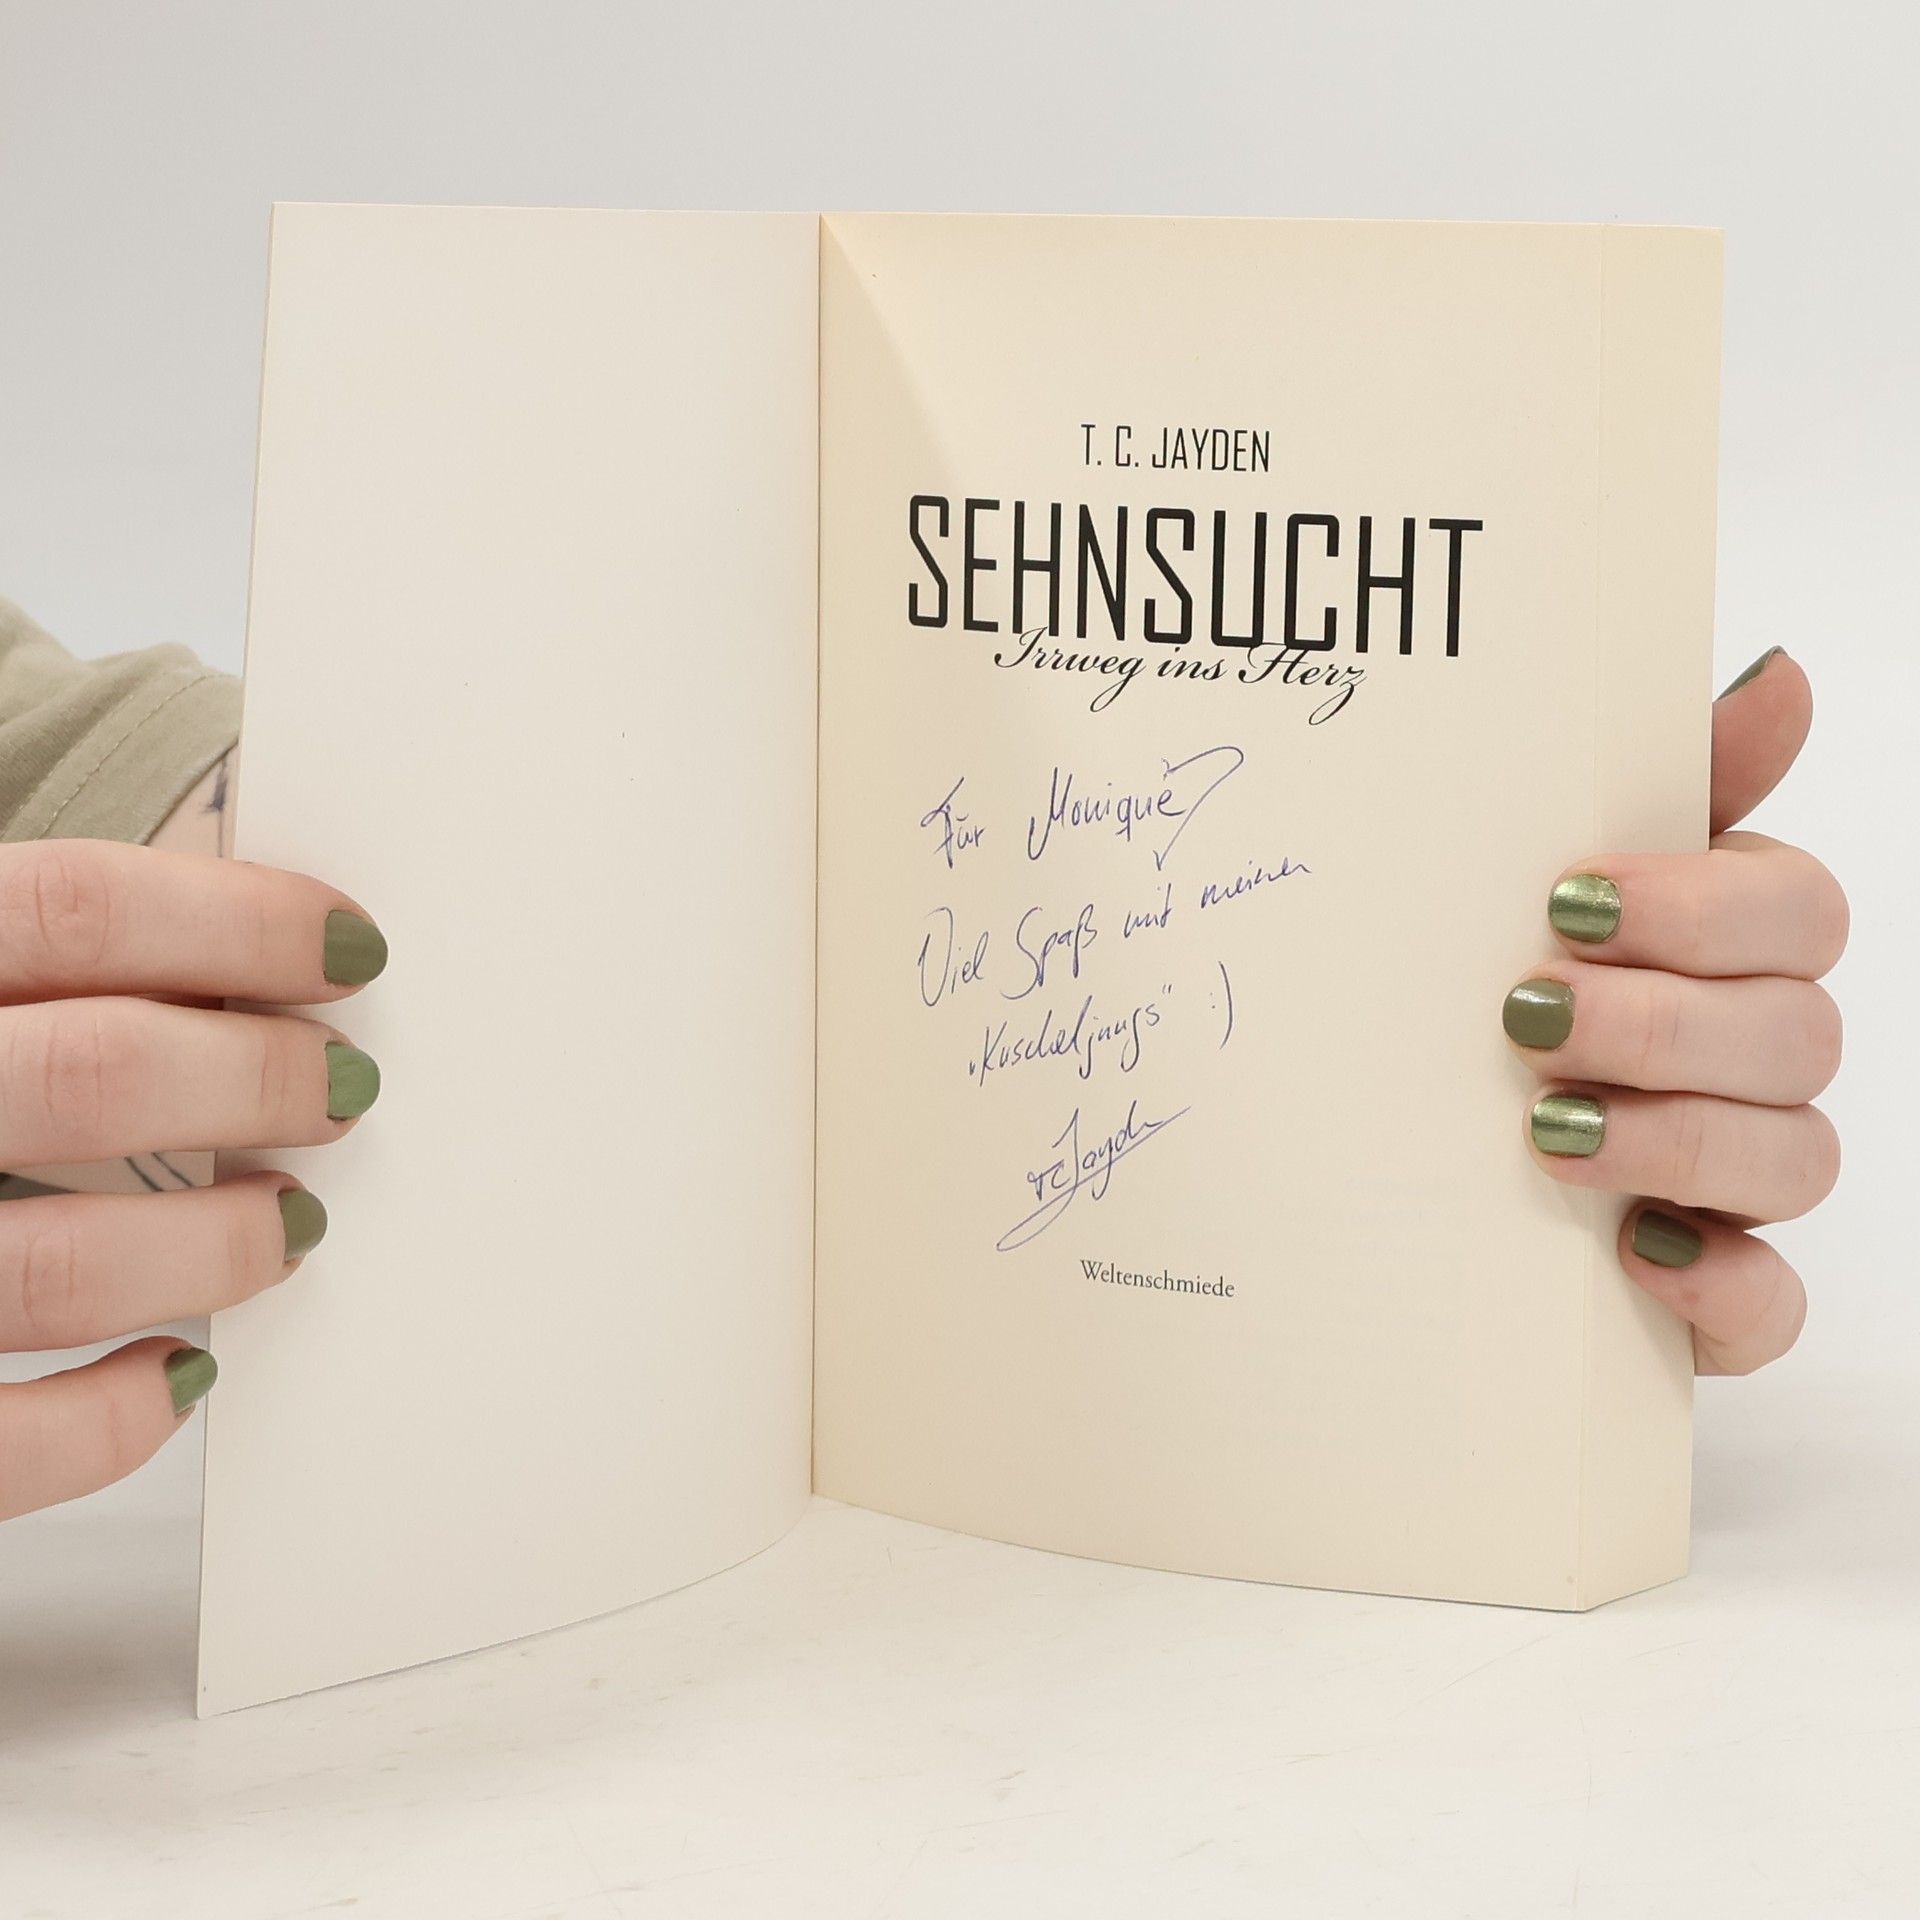 T. C. JAYDEN
SEHNSUCHT
Irrweg ins Herz
Für Monique
Viel Spaß mit meinen
„Kuscheljungs“ :)
TC Jayden
Weltenschmiede